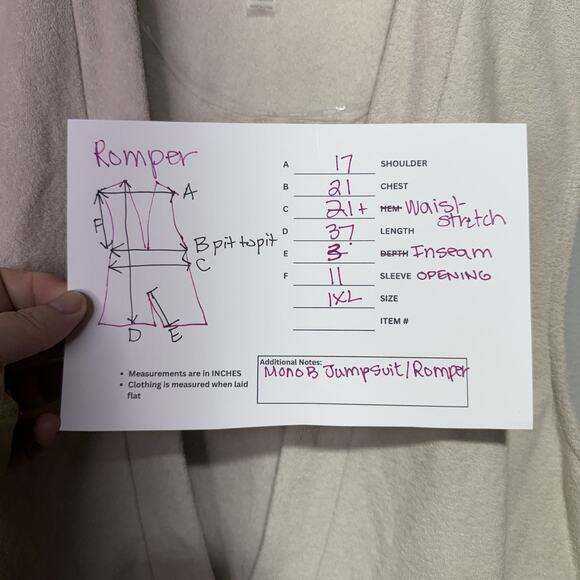 Romper
A
F
B pit to pit
C
D
E
A 17 SHOULDER
B 21 CHEST
C 21+ HEM Waist-stretch
D 37 LENGTH
E 3 DEPTH Inseam
F 11 SLEEVE OPENING
1XL SIZE
ITEM #
• Measurements are in INCHES
• Clothing is measured when laid
flat
Additional Notes:
Mono B Jumpsuit/Romper